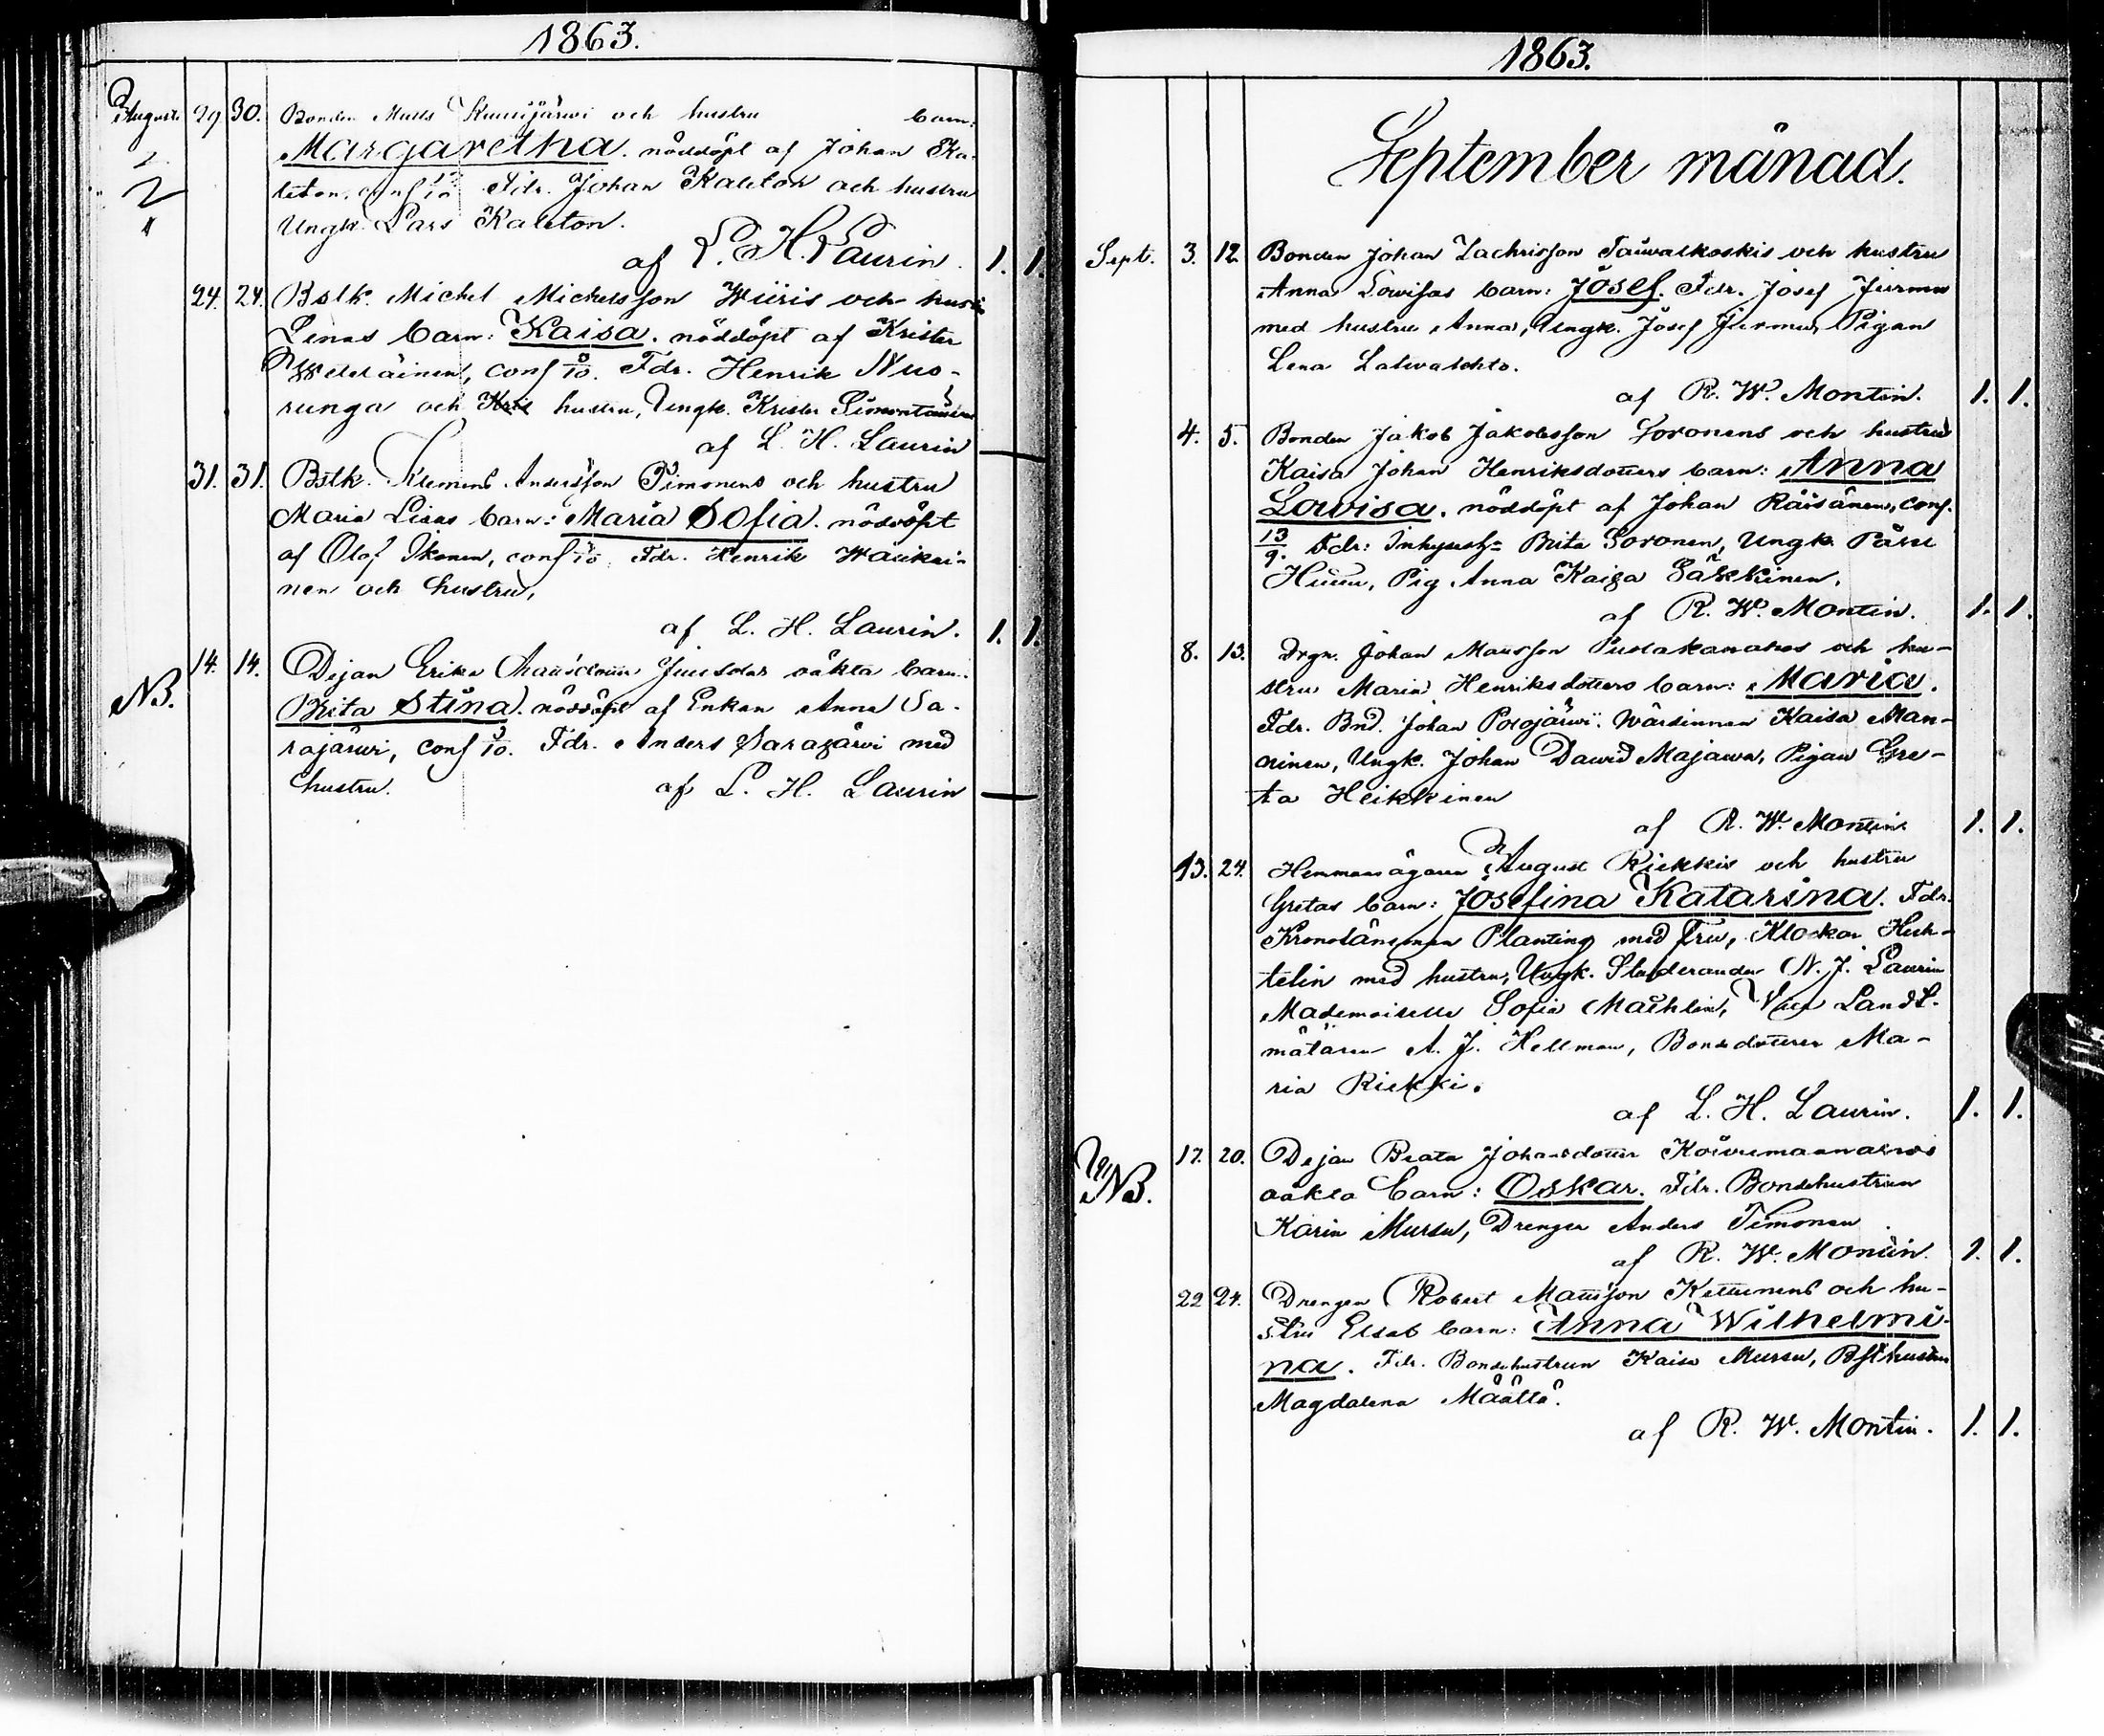 1863.
Augusti 29 30. Bonden Matts Kuusijärwi och hustru barn:
Margaretha. nöddöpt af Johan Ka-
leton, conf Fdr. Johan Kaleton och hustru
Ungk. Lars Kaleton.
af L. H. Laurin. 1. 1.
24. 24. Bslk. Michel Michelsson Wiiris och hustru
Lenas barn: Kaisa. nöddöpt af Krister
conf 8/10. Fdr. Henrik Nuo-
runga och hustru, Ungk. Krister
af L. H. Laurin —
31. 31. Bslk. Klemens Andersson Timonens och hustru
Maria Lisas barn: Maria Sofia. nöddöpt
af Olof Ikonen, conf Fdr. Henrik Wäükäi-
nen och hustru,
af L. H. Laurin. 1. 1.
NB. 14. 14. Dejan Erika oäkta barn:
Brita Stina. nöddöpt af Enkan Anna Sa-
rajärwi, conf Fdr. Anders Sarajärwi med
hustru. af L. H. Laurin —
1863.
September månad.
Sept. 3. 12 Bonden Johan Zachrisson Taiwalkoskis och hustru
Anna Lowisas barn: Josef. Fdr. Josef Jurmu
med hustru Anna, Ungk. Josef Jurmu, Pigan
Lena Latwalehto.
af R. W. Montin. 1. 1.
4. 5. Bonden Jakob Jakobsson Soronens och hustru
Kaisa Johan Henriksdotters barn: Anna
Lowisa. nöddöpt af Johan Räisänen, conf.
13/9. Fdr: Brita Soronen, Ungk. Pärü
Pig Anna Kaisa Säkkinen.
af R. W. Montin. 1. 1.
8. 13. Drgn. Johan Matsson och hu-
stru Maria Henriksdotters barn: Maria.
Fdr. Bnd. Johan Posojärwi. Wärdinnan Kaisa Man-
ninen, Ungk. Johan Dawid Majawa, Pigan Gre-
ta Heikkinen
af R. W. Montin 1. 1.
13. 24. Hemmansägaren August Riekkis och hustru
Gretas barn: Josefina Katarina. Fdr.
Kronolänsman Planting med Fru, Klockar Hech-
telin med hustru, Ungk. Studeranden N. J. Laurin
Mademoiselle Sofia Mächlin, Vice Landt-
mätaren A. J. Hellman, Bondedottren Ma-
ria Riekki.
af L. H. Laurin. 1. 1.
NB. 17. 20. Dejan Beata Johansdotter
oäkta barn: Oskar. Fdr. Bondehustrun
Karin Mursu, Drengen Anders Timonen
af R. W. Montin. 1. 1.
22 24. Drengen Robert Mattsson Kettunens och hu-
stru Elsas barn: Anna Wilhelmi-
na. Fdr. Bondehustrun Kaisa Mursu, Bslkhustrun
Magdalena Määttä.
af R. W. Montin. 1. 1.